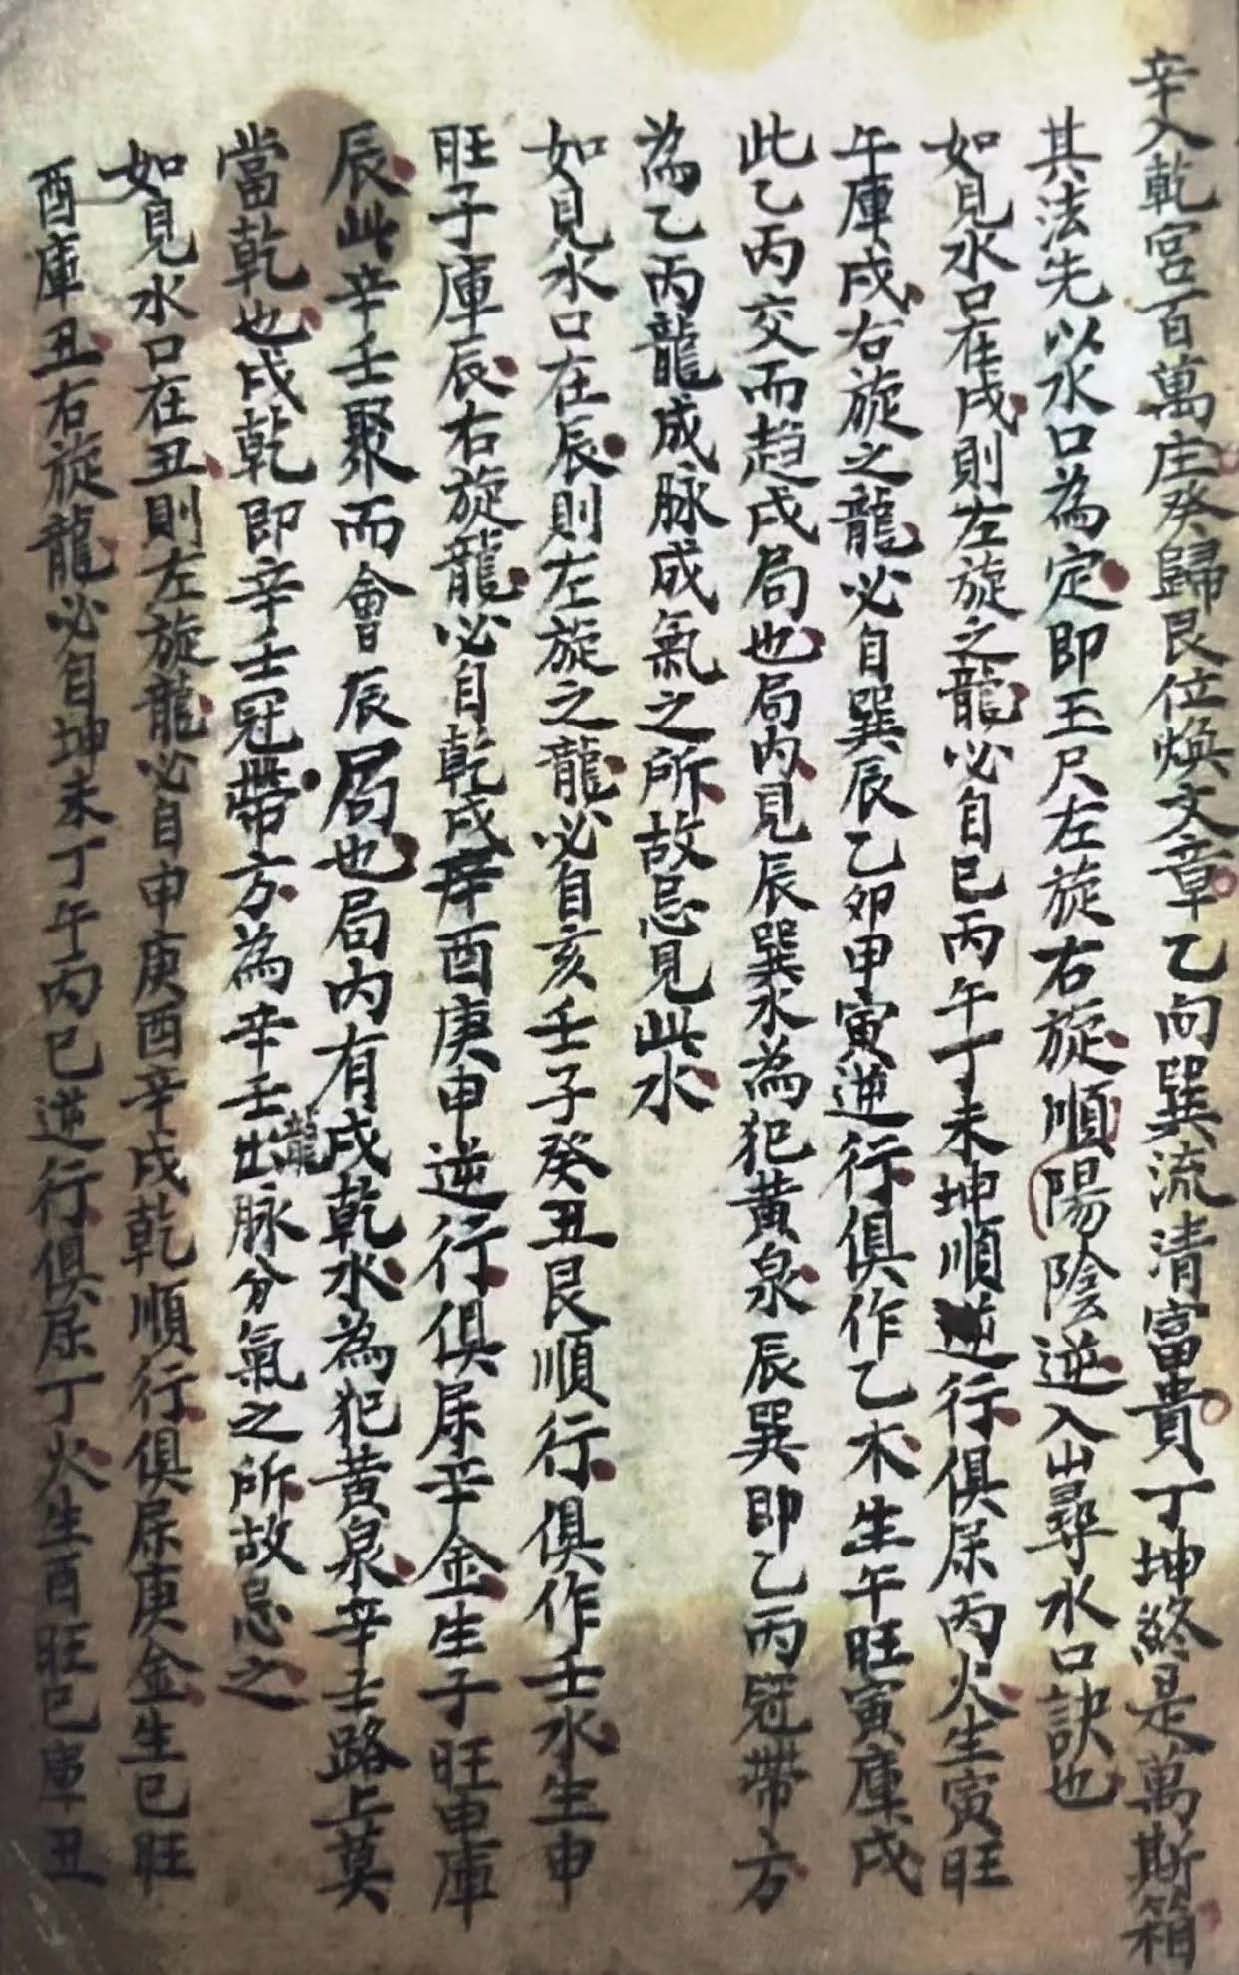 辛入乾宮百萬庄癸歸艮位煥文章乙向巽流清富貴丁坤終是萬斯箱
其法先以水口為定即玉尺左旋右旋順陽陰逆入山尋水口訣也
如見水口在戌則左旋之龍必自巳丙午丁未坤順逆行俱屬丙火生寅旺
午庫戌右旋之龍必自巽辰乙卯甲寅逆行俱作乙木生午旺寅庫戌
此乙丙交而趋戌局也局內見辰巽水為犯黃泉辰巽即乙丙冠帶方
為乙丙龍成脉成氣之所故忌見此水
如見水口在辰則左旋之龍必自亥壬子癸丑艮順行俱作壬水生申
旺子庫辰右旋龍必自乾戌辛酉庚申逆行俱屬辛金生子旺申庫
辰此辛壬聚而會辰局也局內有戌乾水為犯黃泉辛壬路上莫
當乾也戌乾即辛壬冠帶方為辛壬龍出脉分氣之所故忌之
如見水口在丑則左旋龍必自申庚酉辛戌乾順行俱屬庚金生巳旺
酉庫丑右旋龍必自坤未丁午丙巳逆行俱屬丁火生酉旺巳庫丑